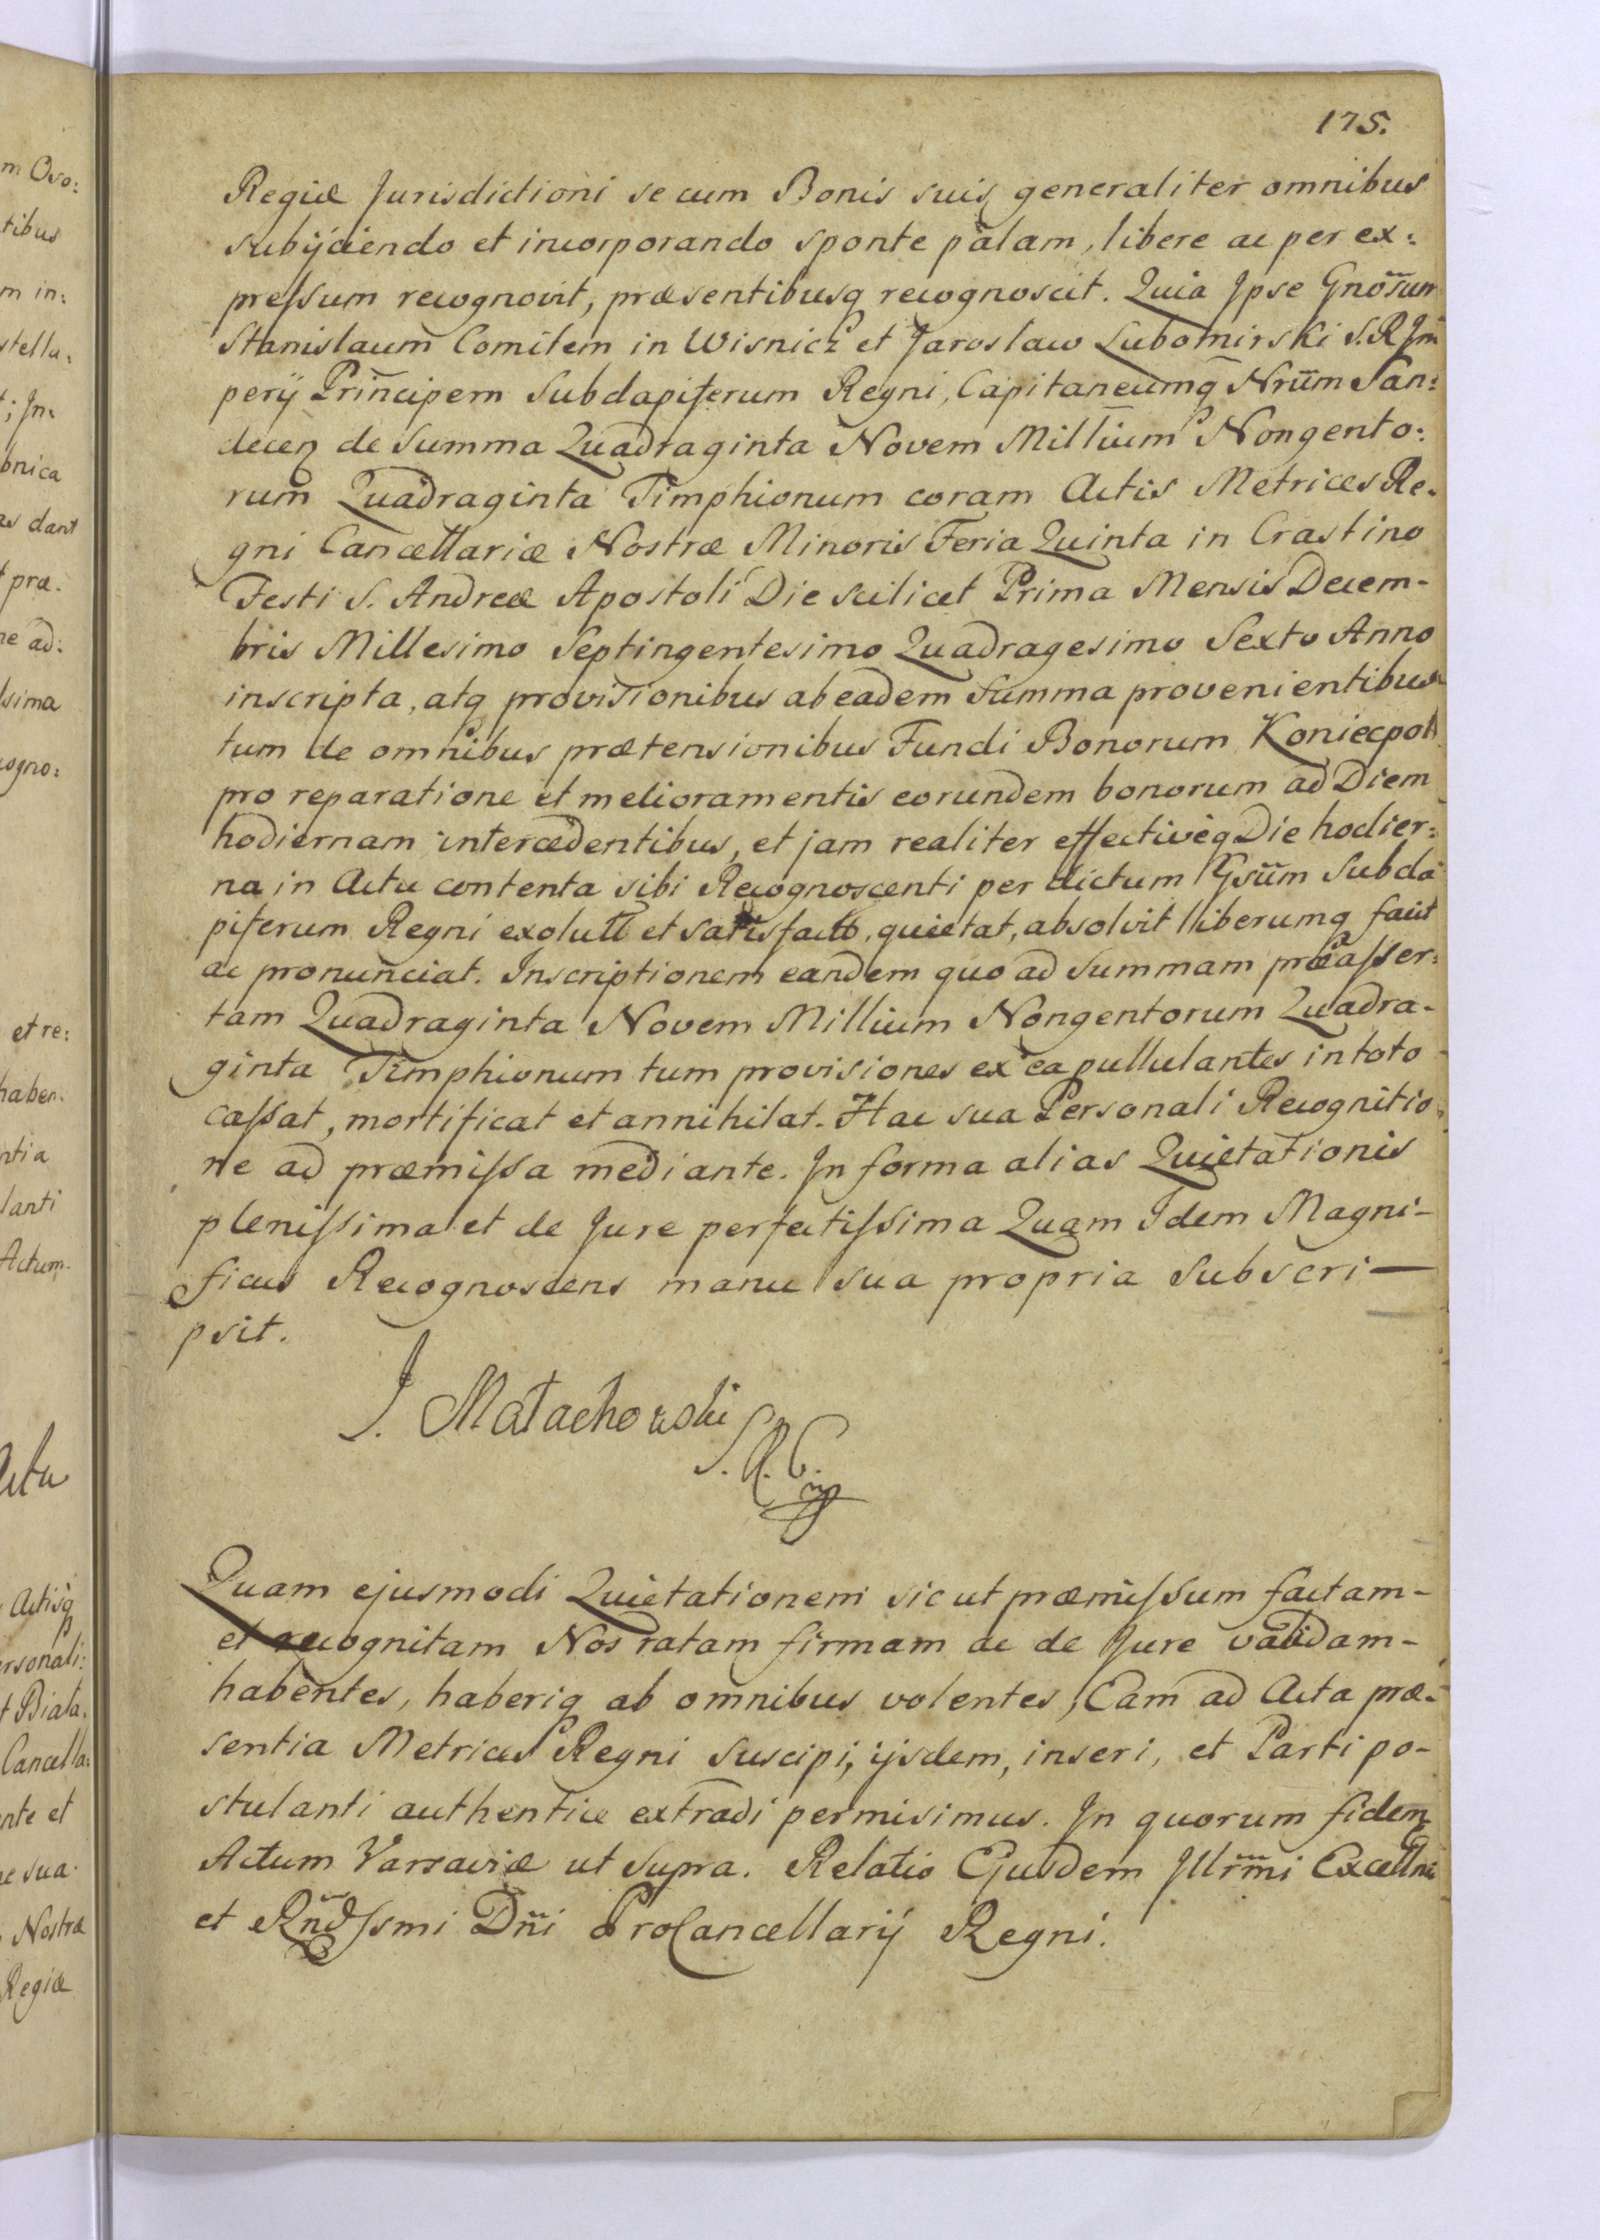 175.
Regiæ Jurisdictioni se cum Bonis suis generaliter omnibus
subijciendo et incorporando sponte palam, libere ac per ex:
pressum recognovit, præsentibusq recognoscit. Quia Ipse Gnosum
Stanislaum Comitem in Wisnicz et Jaroslaw Lubomirski S.R Im
perij Principem Subdapiferum Regni, Capitaneumq Nrum San:
decen de Summa Quadraginta Novem Millium Nongento:
rum Quadraginta Timphionum coram Actis Metrices Re.
gni Cancellariæ Nostræ Minoris Feria Quinta in Crastino
Festi S. Andreæ Apostoli Die scilicet Prima Mensis Decem-
bris Millesimo Septingentesimo Quadragesimo Sexto Anno
inscripta, atq provisionibus ab eadem Summa provenientibus
tum de omnibus prætensionibus Fundi Bonorum Koniecpol
pro reparatione et melioramentis eorundem bonorum ad Diem
hodiernam intercedentibus, et jam realiter effectiveq Die hodier:
na in Actu contenta sibi Recognoscenti per dictum Gsum Subda
piferum Regni exoluti et satisfacto, quietat, absolvit liberumq facit
ac pronunciat. Inscriptionem eandem quo ad Summam præasser:
tam Quadraginta Novem Millium Nongentorum Quadra-
ginta Timphionum tum provisiones ex ea pullulantes in toto
cassat, mortificat et annihilat. Hac sua Personali Recognitio
ne ad præmissa mediante. In forma alias Quietationis
plenissima et de Jure perfectissima Quam Idem Magni-
ficus Recognoscens manu sua propria Subscri-
psit.
J. Małachowski
S.R.C.
mp
Quam ejusmodi Quietationem sic ut præmissum factam-
et recognitam Nos ratam firmam ac de Jure validam-
habentes, haberiq ab omnibus volentes, Eam ad Acta præ.
sentia Metrices Regni Suscipi, ijsdem, inseri, et Parti po-
stulanti authentice extradi permisimus. In quorum fidem
Actum Varsaviæ ut Supra. Relatio Ejusdem Illrmi Excellni
et Rndssmi Dni ProCancellarij Regni.